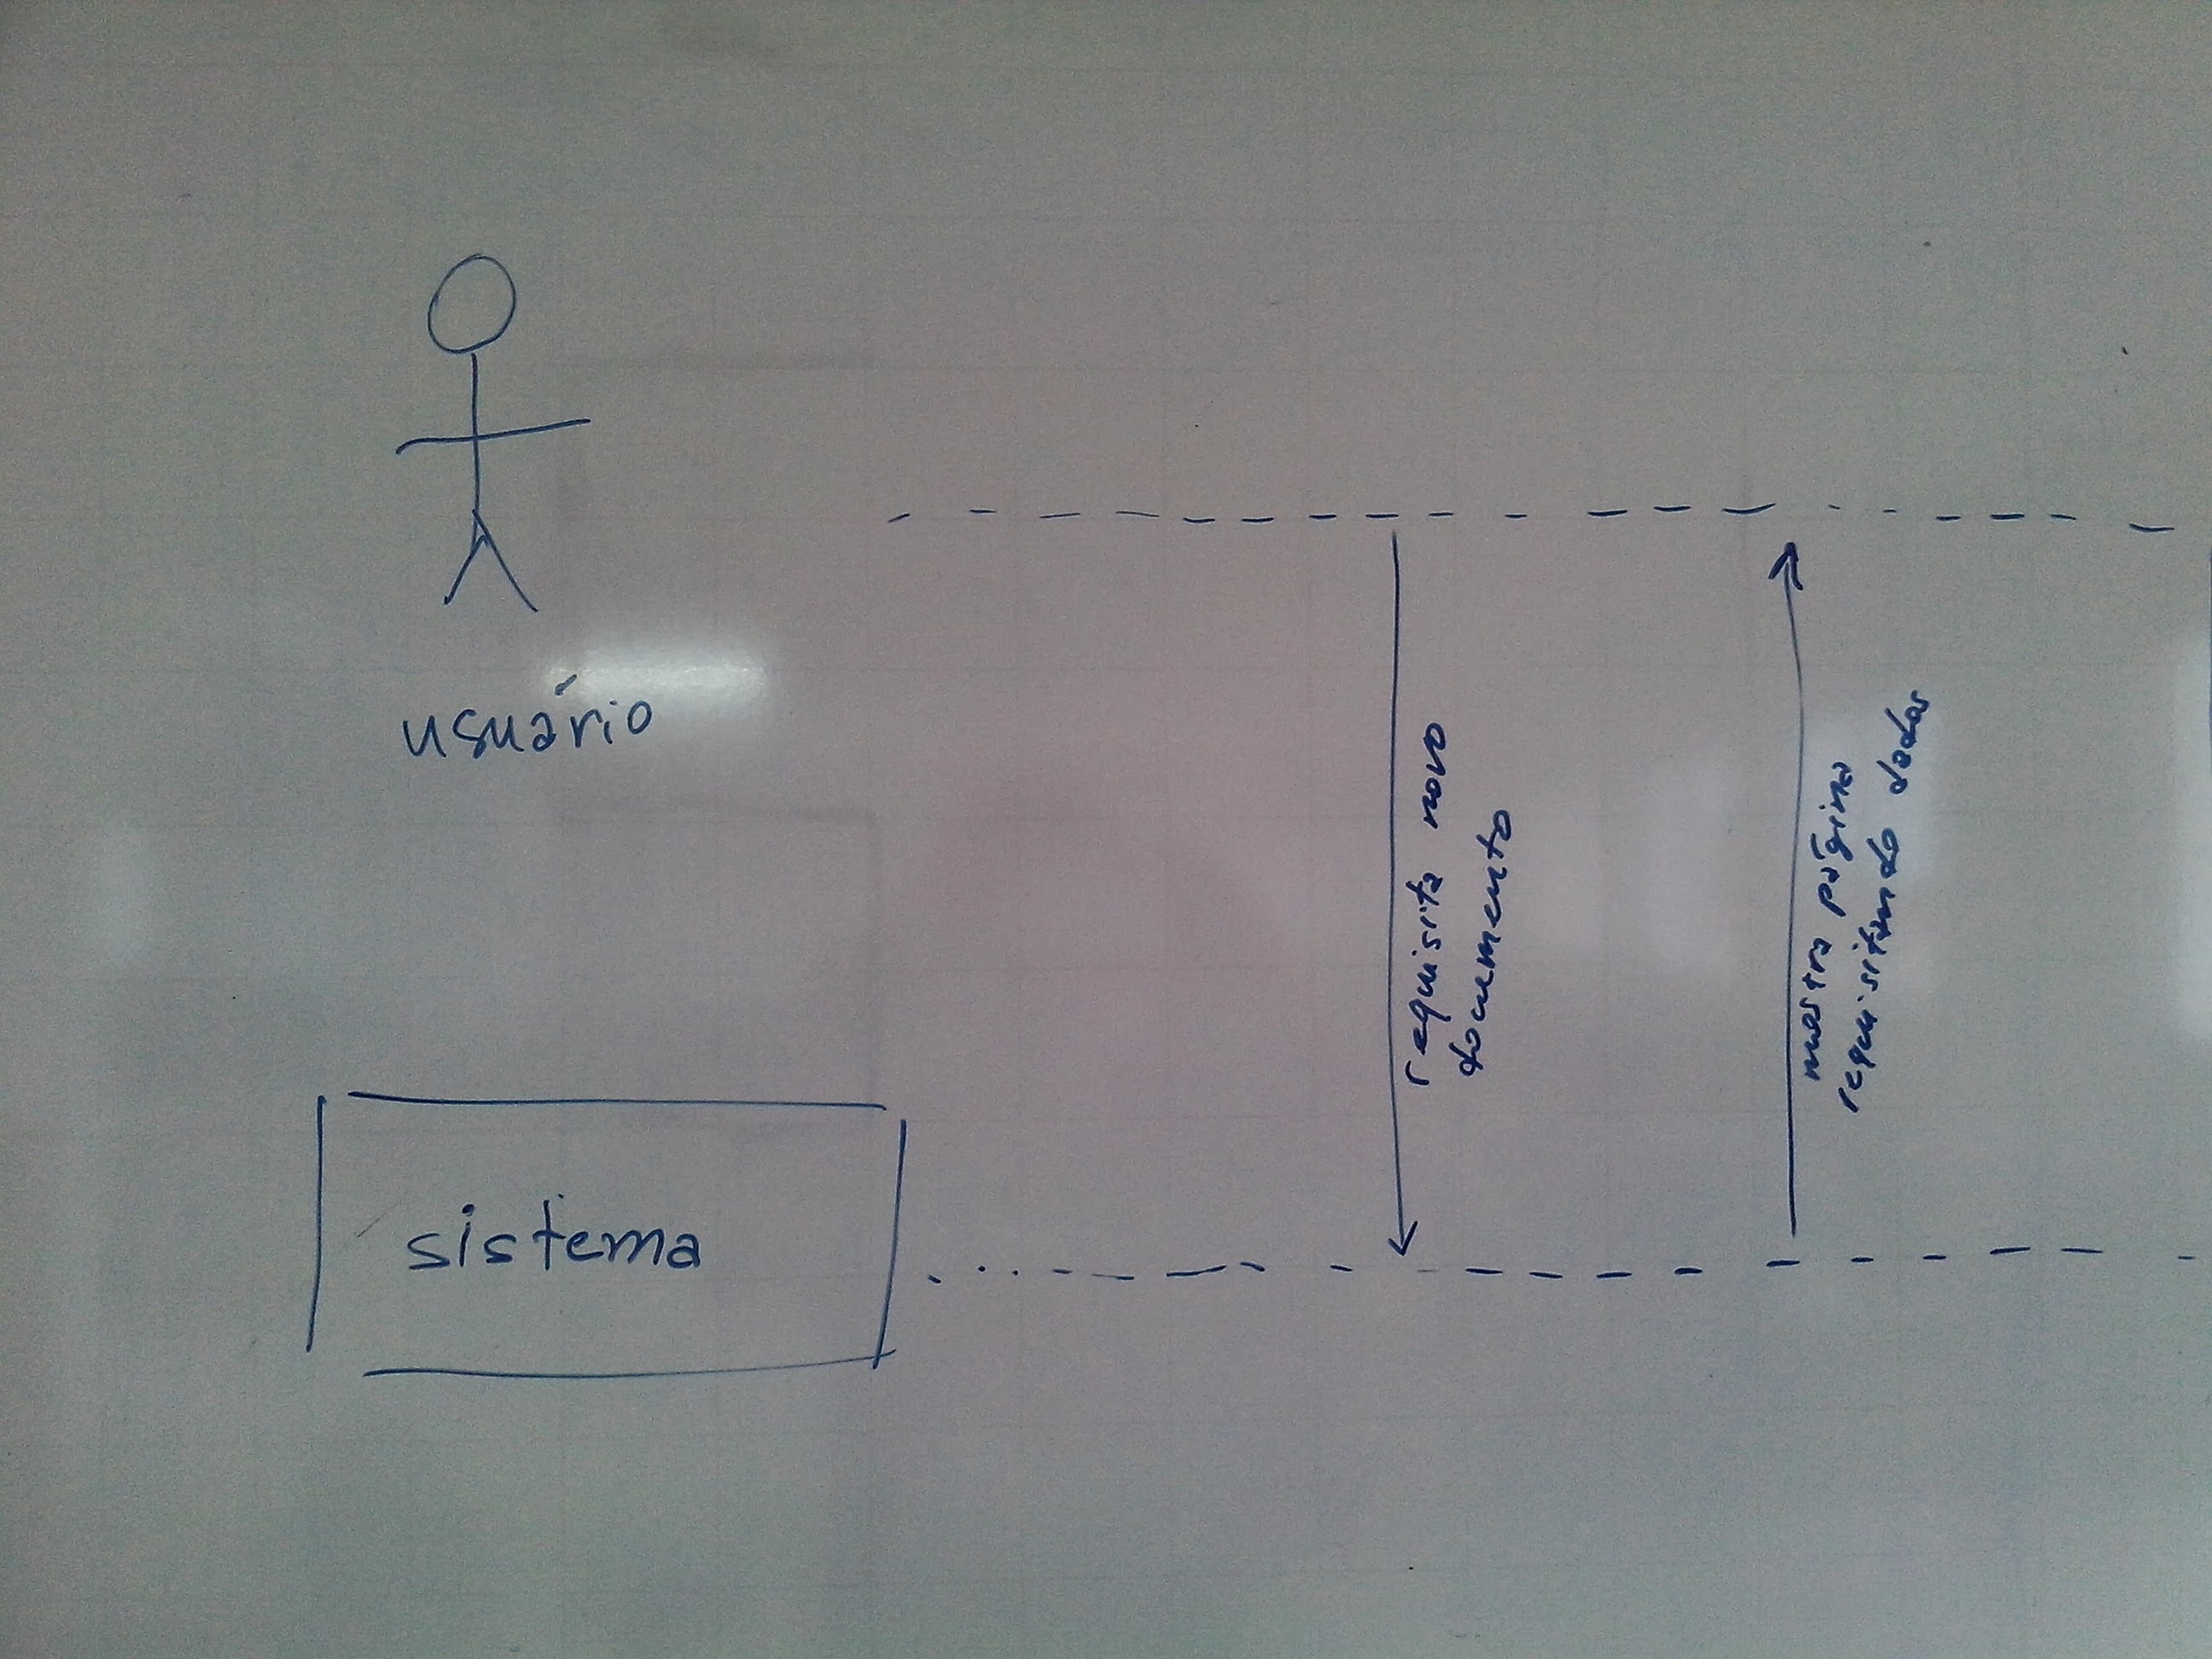 usuário
sistema
requisita novo
documento
mostra página
requisitando dados